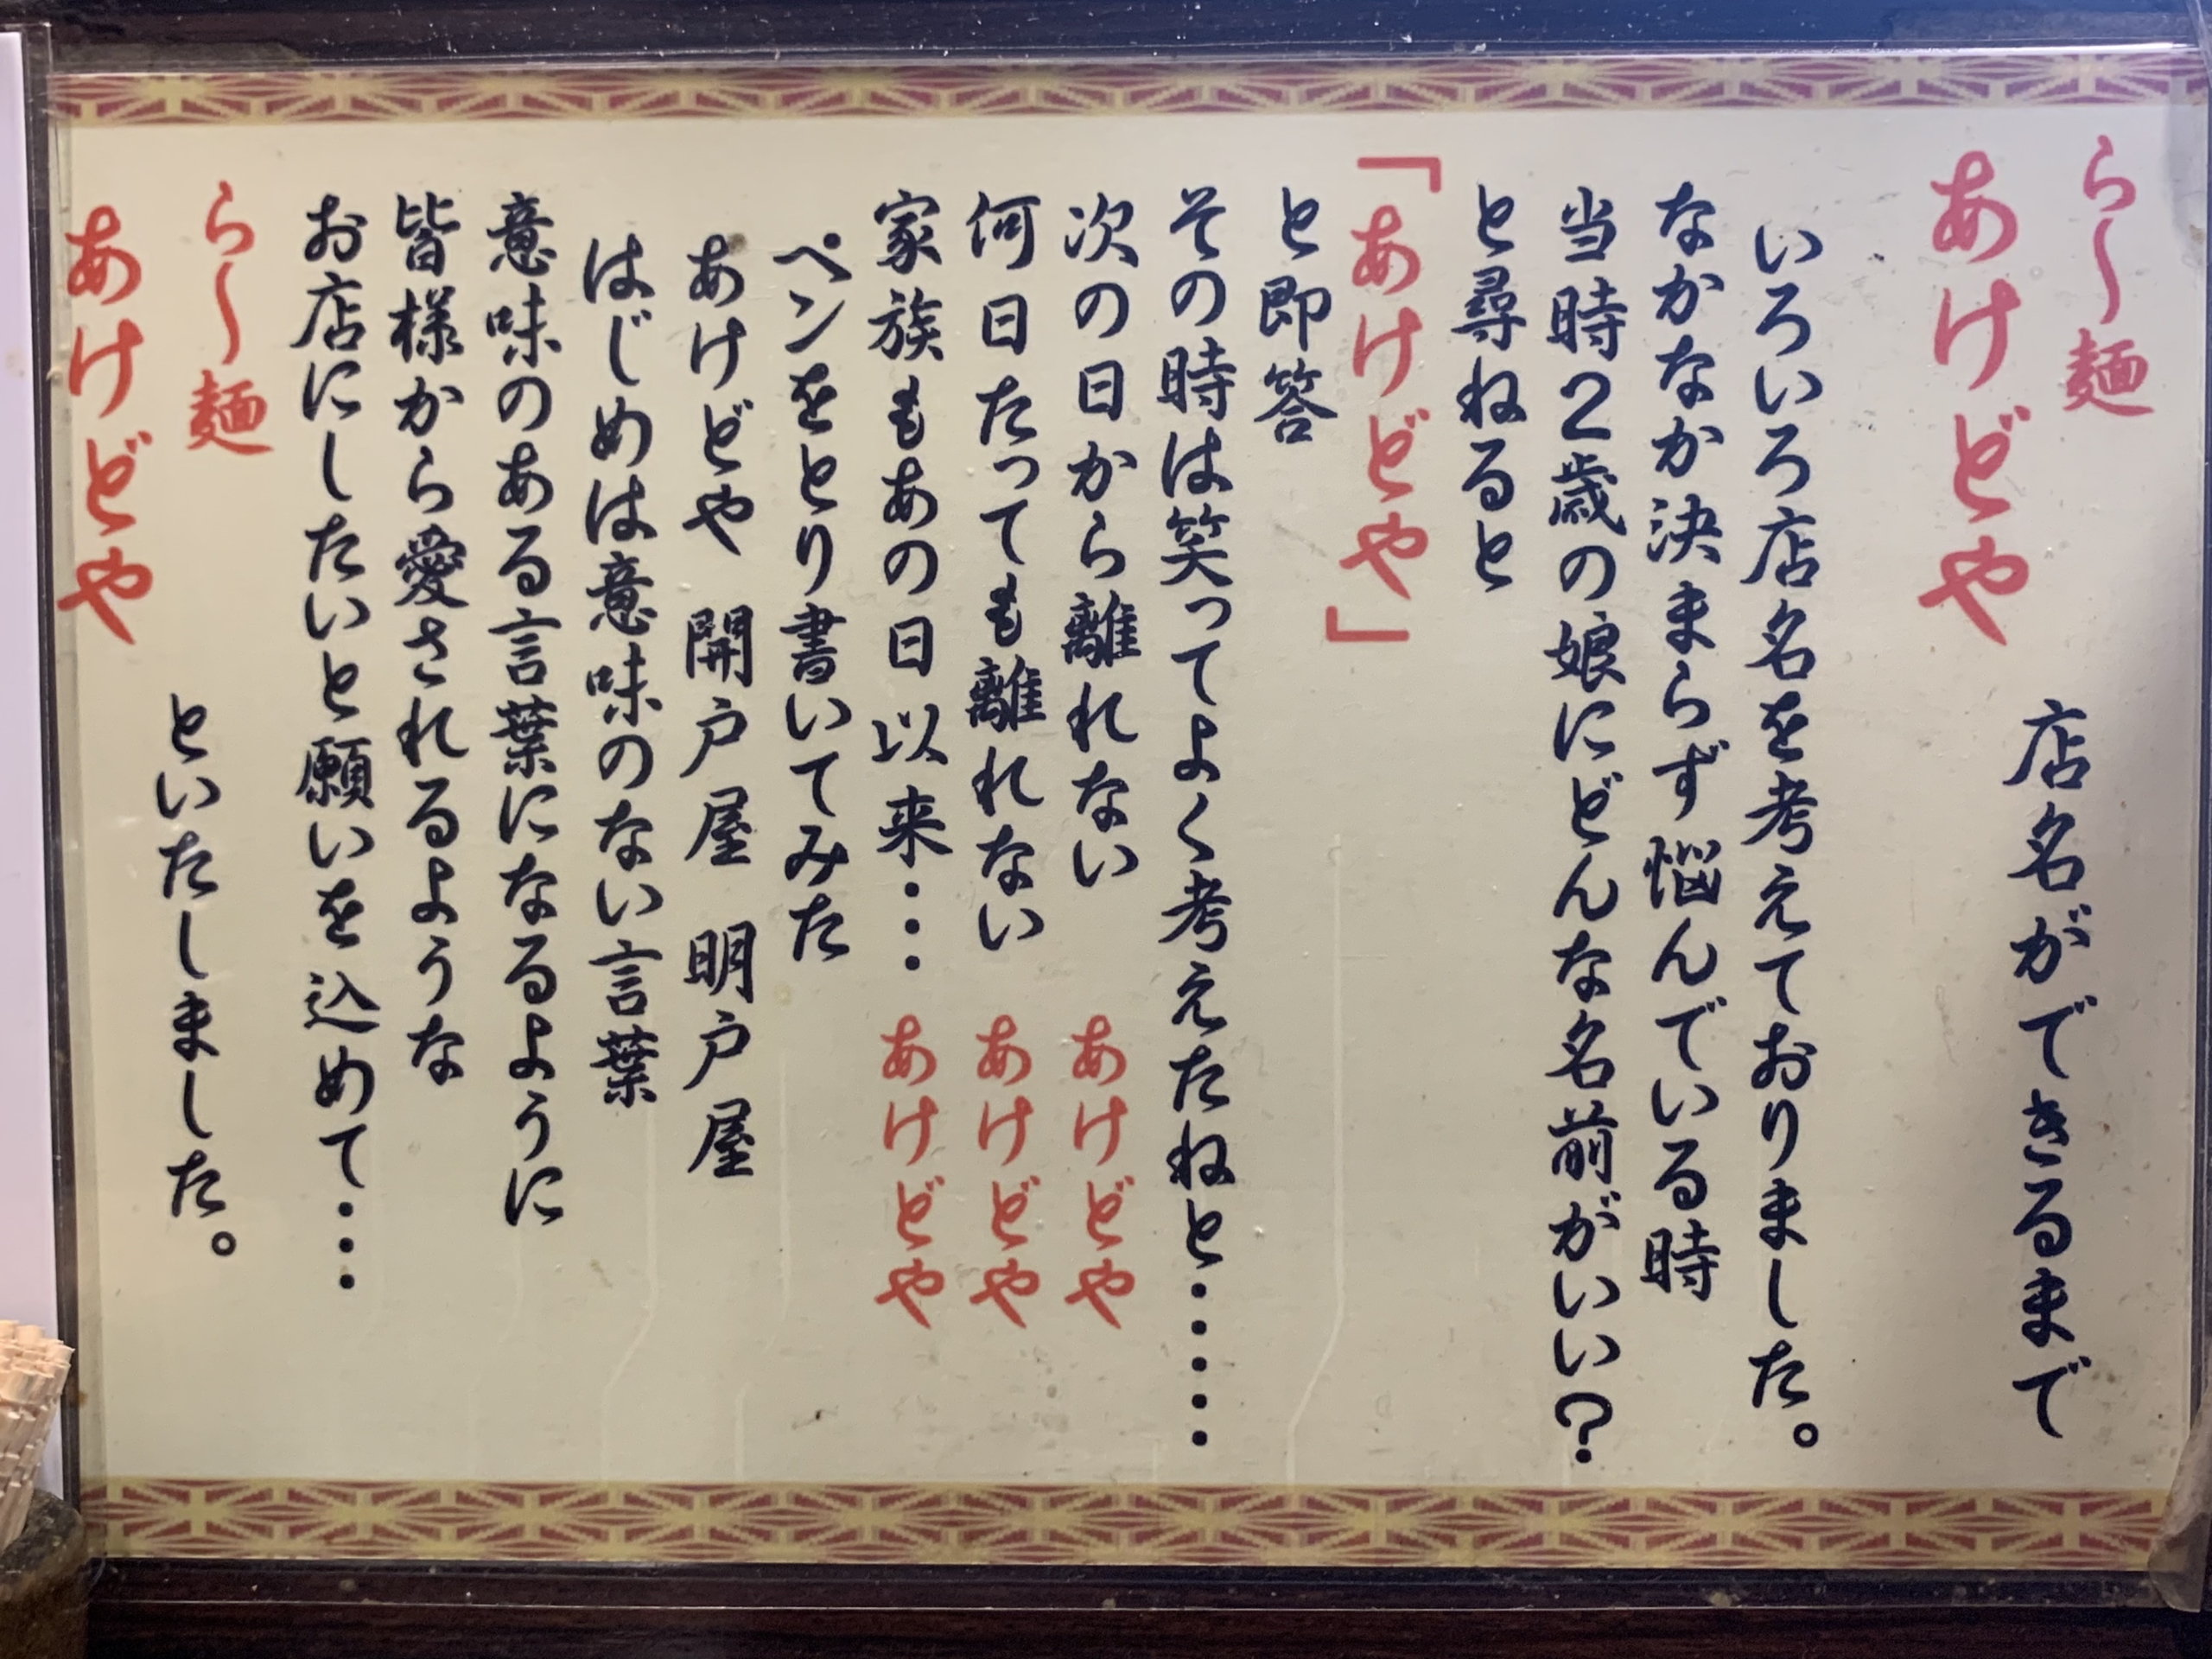 ら〜麺
あけどや
店名ができるまで
いろいろ店名を考えておりました。
なかなか決まらず悩んでいる時
当時2歳の娘にどんな名前がいい?
と尋ねると
「あけどや」
と即答
その時は笑ってよく考えたねと・・・・・
次の日から離れない あけどや
何日たっても離れない あけどや
家族もあの日以来・・・ あけどや
ペンをとり書いてみた
あけどや 開戸屋 明戸屋
はじめは意味のない言葉
意味のある言葉になるように
皆様から愛されるような
お店にしたいと願いを込めて・・・
ら〜麺
あけどや
といたしました。